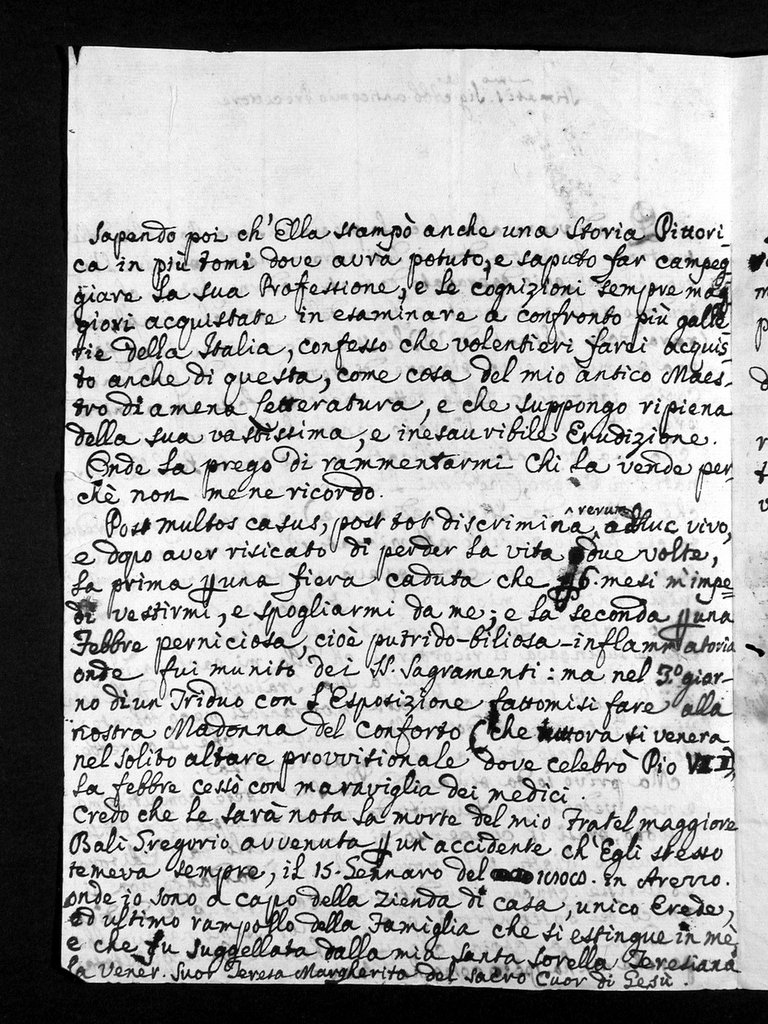 Sapendo poi ch'Ella stampò anche una Storia Pittori-
ca in più tomi dove avrà potuto, e saputo far campeg-
giare la sua Professione, e le cognizioni sempre mag-
giori acquistate in esaminare a confronto più galle-
rie della Italia, confesso che volentieri farei acquis-
to anche di questa, come cosa del mio antico Maes-
tro di amena letteratura, e che suppongo ripiena
della sua vastissima, e inesauribile Erudizione.
Onde la prego di rammentarmi chi la vende per-
chè non me ne ricordo.
Post multos casus, post tot discrimina rerum adhuc vivo,
e dopo aver risicato di perder la vita due volte,
la prima p una fiera caduta che p 6. mesi m'impe=
di vestirmi, e spogliarmi da me; e la seconda p una
Febbre perniciosa, cioè putrido-biliosa-inflammatoria
onde fui munito dei SS. Sagramenti: ma nel 3.º gior-
no di un Triduo con l'Esposizione fattomisi fare alla
nostra Madonna del Conforto (che tuttora si venera
nel solito altare provvisionale dove celebrò Pio VII)
la febbre cessò con maraviglia dei medici.
Credo che le sarà nota la morte del mio Fratel maggiore
Balì Gregorio avvenuta p un'accidente ch'Egli stesso
temeva sempre, il 15. Gennaro del in Arezzo.
onde io sono a capo della zienda di casa, unico Erede,
ed ultimo rampollo della Famiglia che si estingue in mè,
e che fu suggellata dalla mia Santa Sorella Teresiana
la Vener. Suor Teresa Margherita del Sacro Cuor di Gesù.